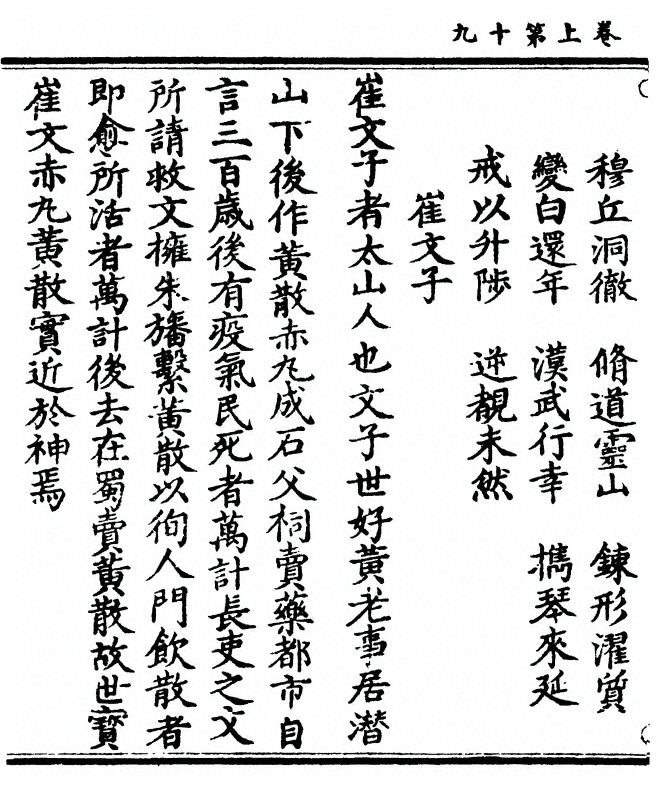 卷上第十九
穆丘洞徹 脩道靈山 鍊形濯質
變白還年 漢武行幸 攜琴來延
戒以升陟 逆覩未然
崔文子
崔文子者太山人也文子世好黃老事居潛
山下後作黃散赤丸成石父祠賣藥都市自
言三百歲後有疫氣民死者萬計長吏之文
所請救文擁朱旛繫黃散以徇人門飲散者
即愈所活者萬計後去在蜀賣黃散故世寶
崔文赤丸黃散實近於神焉